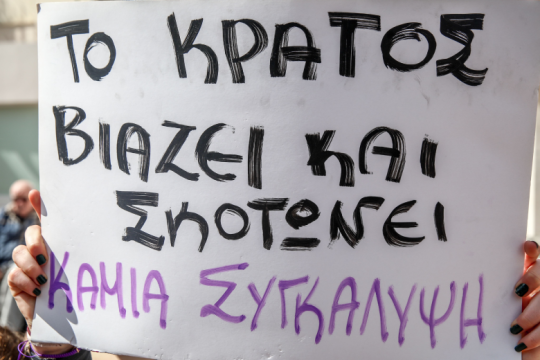 ΤΟ ΚΡΑΤΟΣ
ΒΙΑΖΕΙ ΚΑΙ
ΣΚΟΤΩΝΕΙ
ΚΑΜΙΑ ΣΥΓΚΑΛΥΨΗ